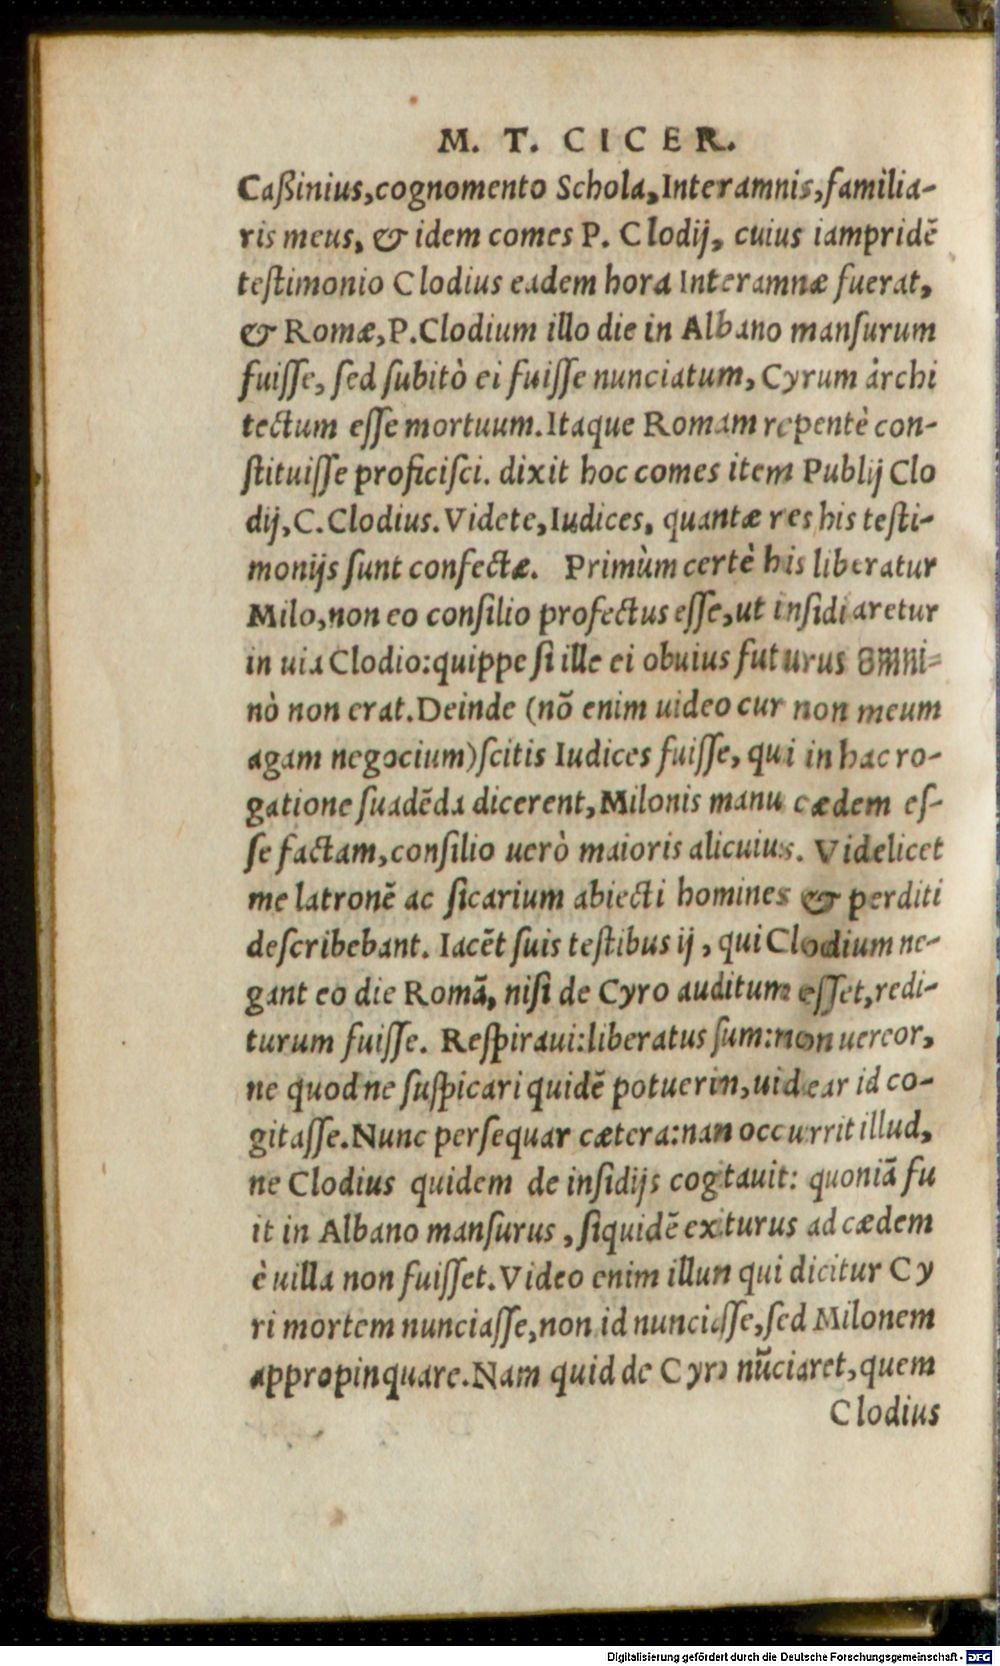 M. T. CICER.
Caßinius,cognomento Schola,Interamnis,familia-
ris meus, & idem comes P. Clodij, cuius iampridē
testimonio Clodius eadem hora Interamnæ fuerat,
& Romæ,P.Clodium illo die in Albano mansurum
fuisse, sed subitò ei fuisse nunciatum, Cyrum àrchi
tectum esse mortuum.Itaque Romam repentè con-
stituisse proficisci. dixit hoc comes item Publij Clo
dij,C.Clodius.Videte,Iudices, quantæ res his testi-
monijs sunt confectæ. Primùm certè his liberatur
Milo,non eo consilio profectus esse,ut insidiaretur
in uia Clodio:quippe si ille ei obuius futurus omni-
nò non erat.Deinde (nō enim uideo cur non meum
agam negocium)scitis Iudices fuisse, qui in hac ro-
gatione suadēda dicerent,Milonis manu cædem es-
se factam,consilio uerò maioris alicuius. Videlicet
me latronē ac sicarium abiecti homines & perditi
describebant. Iacēt suis testibus ij , qui Clodium ne-
gant eo die Romā, nisi de Cyro auditum esset,redi-
turum fuisse. Respiraui:liberatus sum:non uereor,
ne quod ne suspicari quidē potuerin,uidear id co-
gitasse.Nunc persequar cætera:nan occurrit illud,
ne Clodius quidem de insidijs cogtauit: quoniā fu
it in Albano mansurus , siquidē exiturus ad cædem
è uilla non fuisset.Video enim illun qui dicitur Cy
ri mortem nunciasse,non id nunciasse,sed Milonem
appropinquare.Nam quid de Cyro nūciaret,quem
Clodius
Digitalisierung gefördert durch die Deutsche Forschungsgemeinschaft - DFG